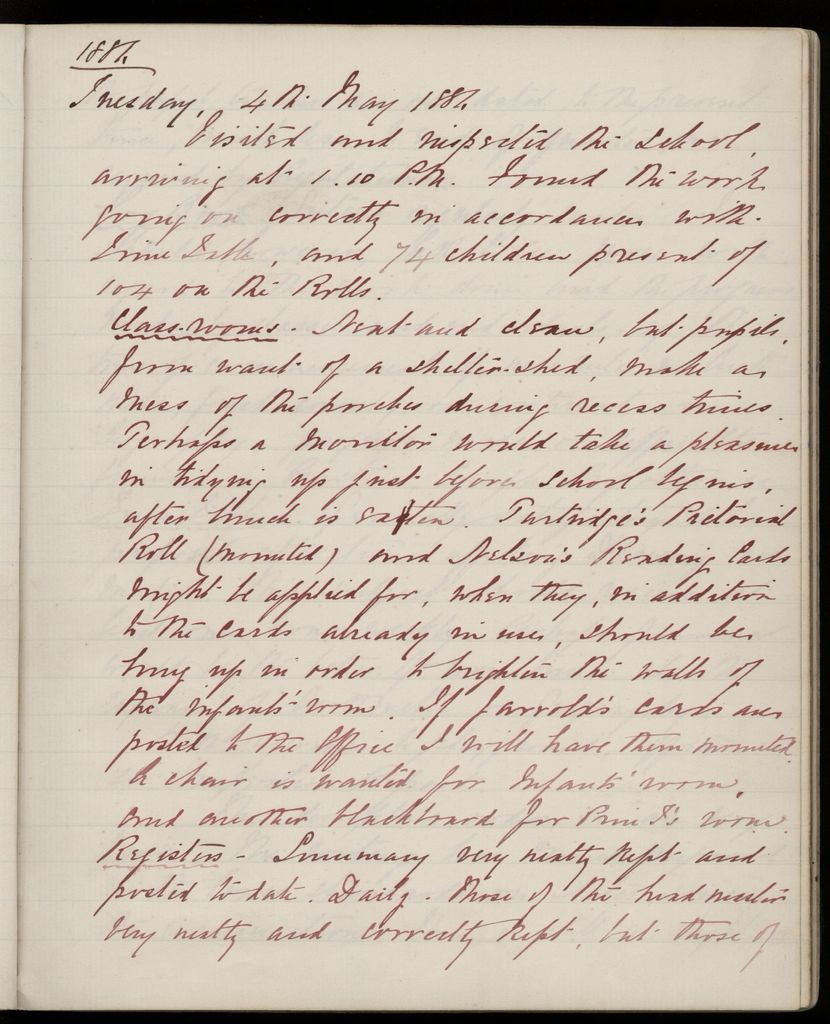 1886.
Tuesday, 4th May 1886.
Visited and inspected the school,
arriving at 1.10 P.M. Found the work
going on correctly in accordance with
Time Table, and 74 children present of
104 on the Rolls.
Class-rooms - Neat and clean, but pupils,
from want of a shelter-shed, make a
mess of the porches during recess times.
Perhaps a monitor would take a pleasure
in tidying up just before school begins,
after lunch is eaten. Partridge's Pictorial
Roll (mounted) and Nelson's Reading Cards
might be applied for, when they, in addition
to the cards already in use, should be
hung up in order to brighten the walls of
the infants' room. If Jarrold's cards are
posted to the Office I will have them mounted.
A chair is wanted for Infants' room,
and another blackboard for Prin T's room.
Registers - Summary very neatly kept and
posted to date. Daily - those of the head master
very neatly and correctly kept, but those of